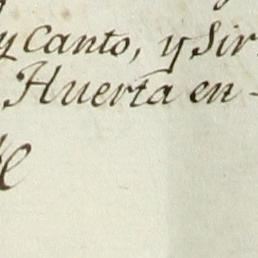 y Canto, y Sir
Huerta en -